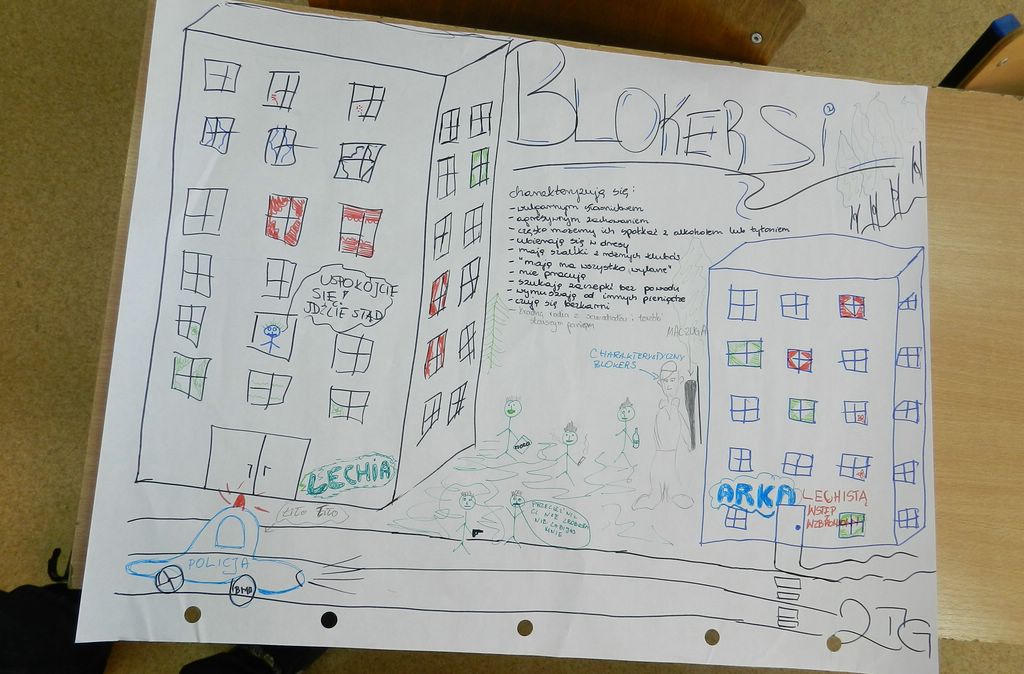 BLOKERSi
charakteryzują się:
- wulgarnym słownictwem
- agresywnym zachowaniem
- często możemy ich spotkać z alkoholem lub tytoniem
- ubierają się w dresy
- mają szaliki z różnych klubów
- "mają na wszystko wylane"
- nie pracują
- szukają zaczepki bez powodu
- wymuszają od innych pieniądze
- czują się bezkarni
- kradną radia z samochodów i torebki
starszym paniom
USPOKÓJCIE
SIĘ I
IDZCIE STĄD
MACZUGA
CHARAKTERYSTYCZNY
BLOKERS
LECHIA
ARKA
LECHISTĄ
WSTĘP
WZBRONIONY
POLICJA
BMW
2TG